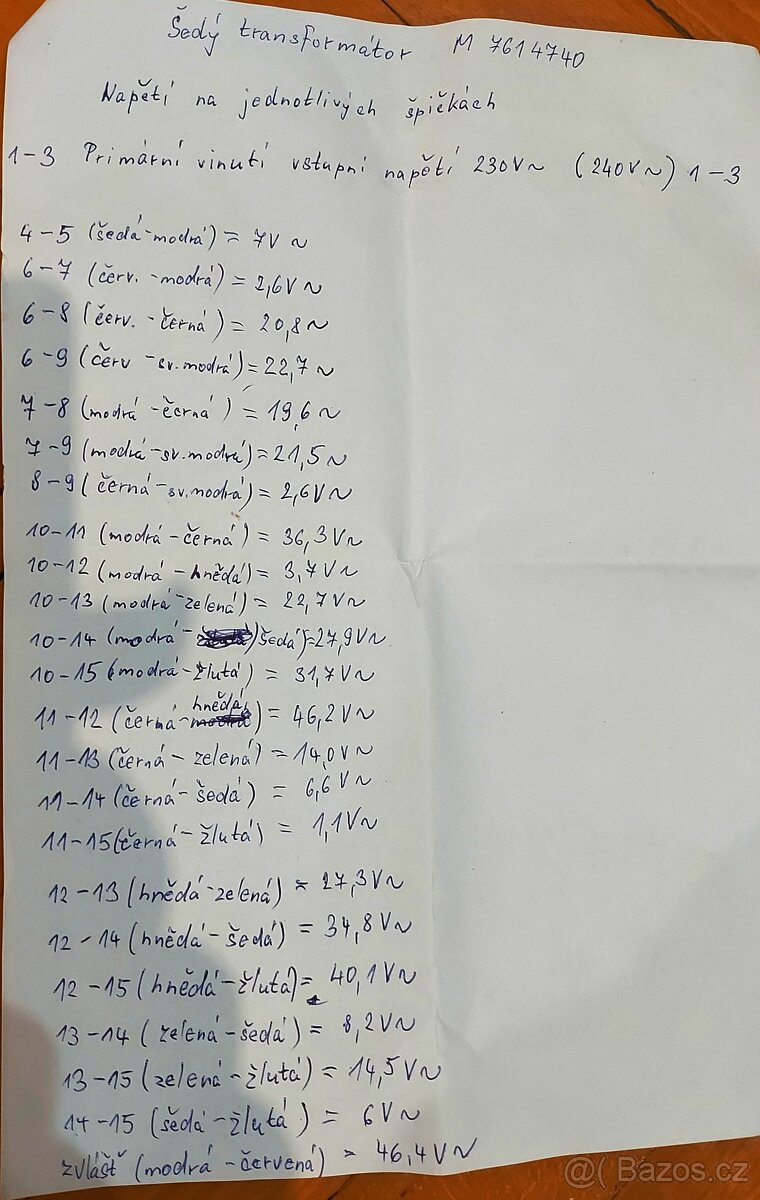 Šedý transformátor M 7614740
Napětí na jednotlivých špičkách
1-3 Primární vinutí vstupní napětí 230V~ (240V~) 1-3
4-5 (šedá-modrá) = 7V~
6-7 (červ. -modrá) = 2,6V~
6-8 (červ. -černá) = 20,8~
6-9 (červ -sv.modrá) = 22,7~
7-8 (modrá -černá) = 19,6~
7-9 (modrá-sv.modrá) = 21,5~
8-9 (černá -sv.modrá) = 2,6V~
10-11 (modrá -černá) = 36,3V~
10-12 (modrá -hnědá) = 3,7V~
10-13 (modrá-zelená) = 22,7V~
10-14 (modrá- šedá) = 27,9V~
10-15 (modrá-žlutá) = 31,7V~
11-12 (černá- hnědá) = 46,2V~
11-13 (černá - zelená) = 14,0V~
11-14 (černá- šedá) = 6,6V~
11-15 (černá -žlutá) = 1,1V~
12-13 (hnědá-zelená) = 27,3V~
12-14 (hnědá-šedá) = 34,8V~
12-15 (hnědá-žlutá) = 40,1V~
13-14 (zelená-šedá) = 8,2V~
13-15 (zelená-žlutá) = 14,5V~
14-15 (šedá -žlutá) = 6V~
zvlášť (modrá-červená) = 46,4V~
@( Bazos.cz